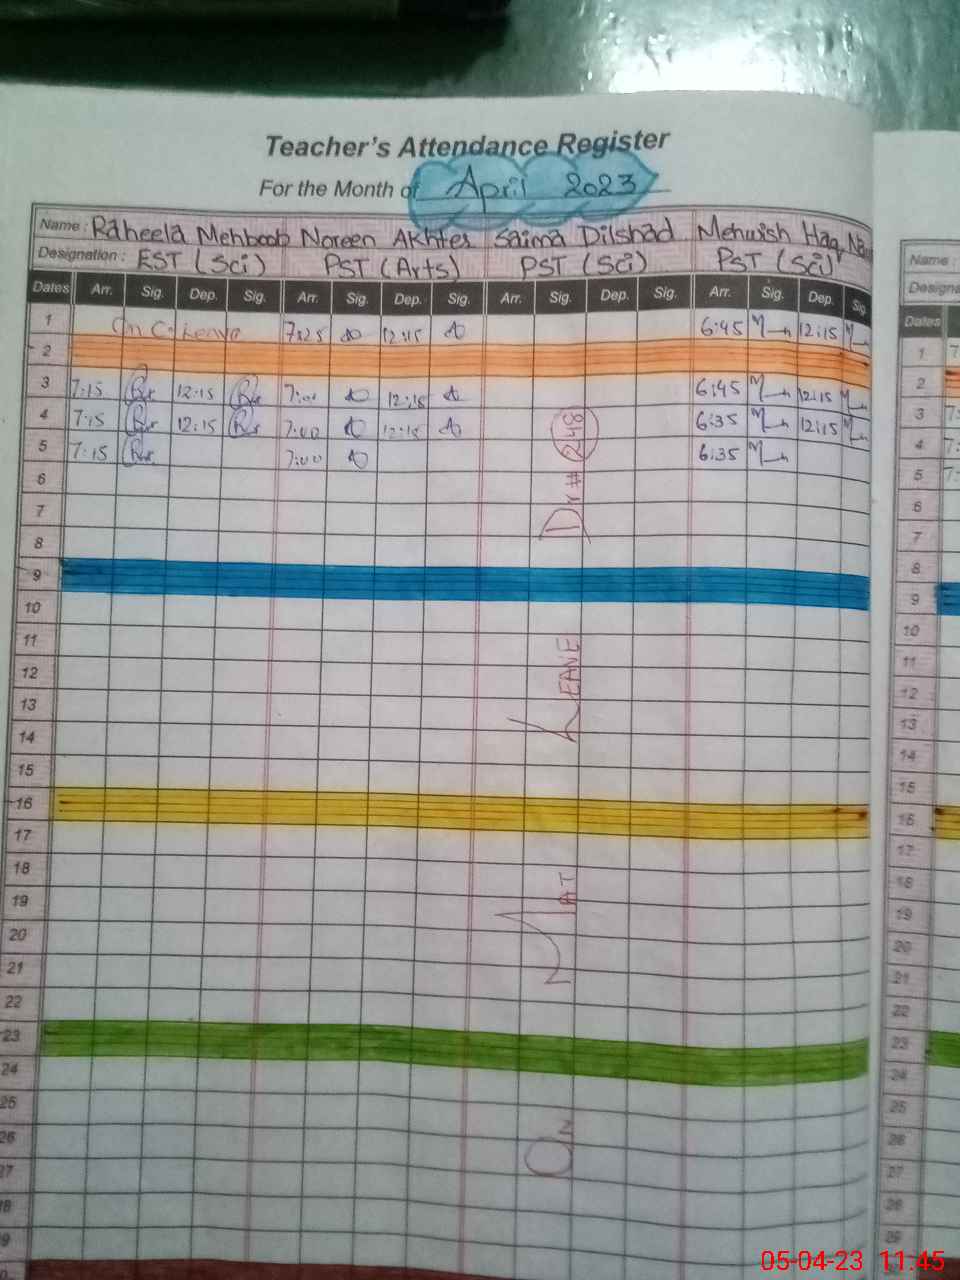 Teacher's Attendance Register
For the Month of April 2023
Name : Raheela Mehboob Noreen Akhter Saima Dilshad Mehwish Haq
Designation : EST (Sci) PST (Arts) PST (Sci) PST (Sci)
Dates Arr. Sig. Dep. Sig. Arr. Sig. Dep. Sig. Arr. Sig. Dep. Sig. Arr. Sig. Dep. Sig.
1 On C. Leave 7:25 12:15 6:45 12:15
2
3 7:15 12:15 7:00 12:15 6:45 12:15
4 7:15 12:15 7:00 12:15 6:35 12:15
5 7:15 7:00 6:35
6
7
8
9
10
11
12
13
14
15
16
17
18
19
20
21
22
23
24
25
26
27
28
29
On MAT LEAVE Dr # 248
Name :
Dates
1 7
2
3 7:
4 7:
5 7:
6
7
8
9
10
11
12
13
14
15
16
17
18
19
20
21
22
23
24
25
26
27
28
29
05-04-23 11:45